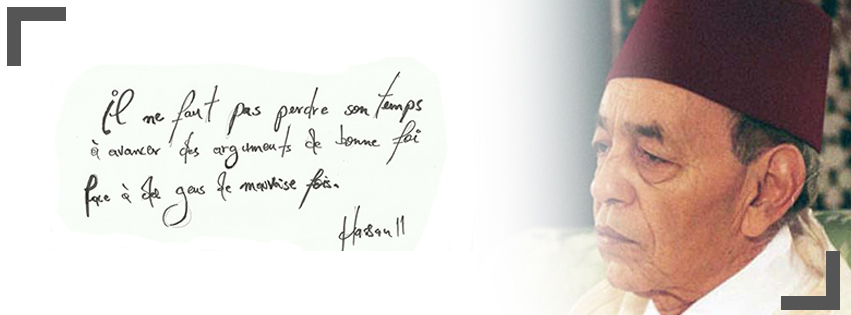 il ne faut pas perdre son temps
à avancer des arguments de bonne foi
face à des gens de mauvaise fois.
Hassan II